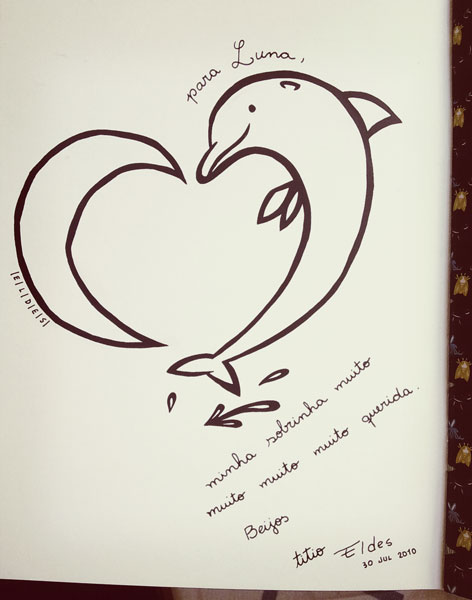 para Luna,
|E|L|D|E|S|
minha sobrinha muito
muito muito muito querida.
Beijos
titio Eldes
30 JUL 2010